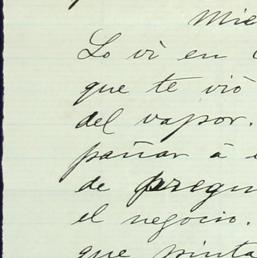 Lo vi en
que te vió
del vapor.
pañar á
de pregun
el negocio.
que pinta